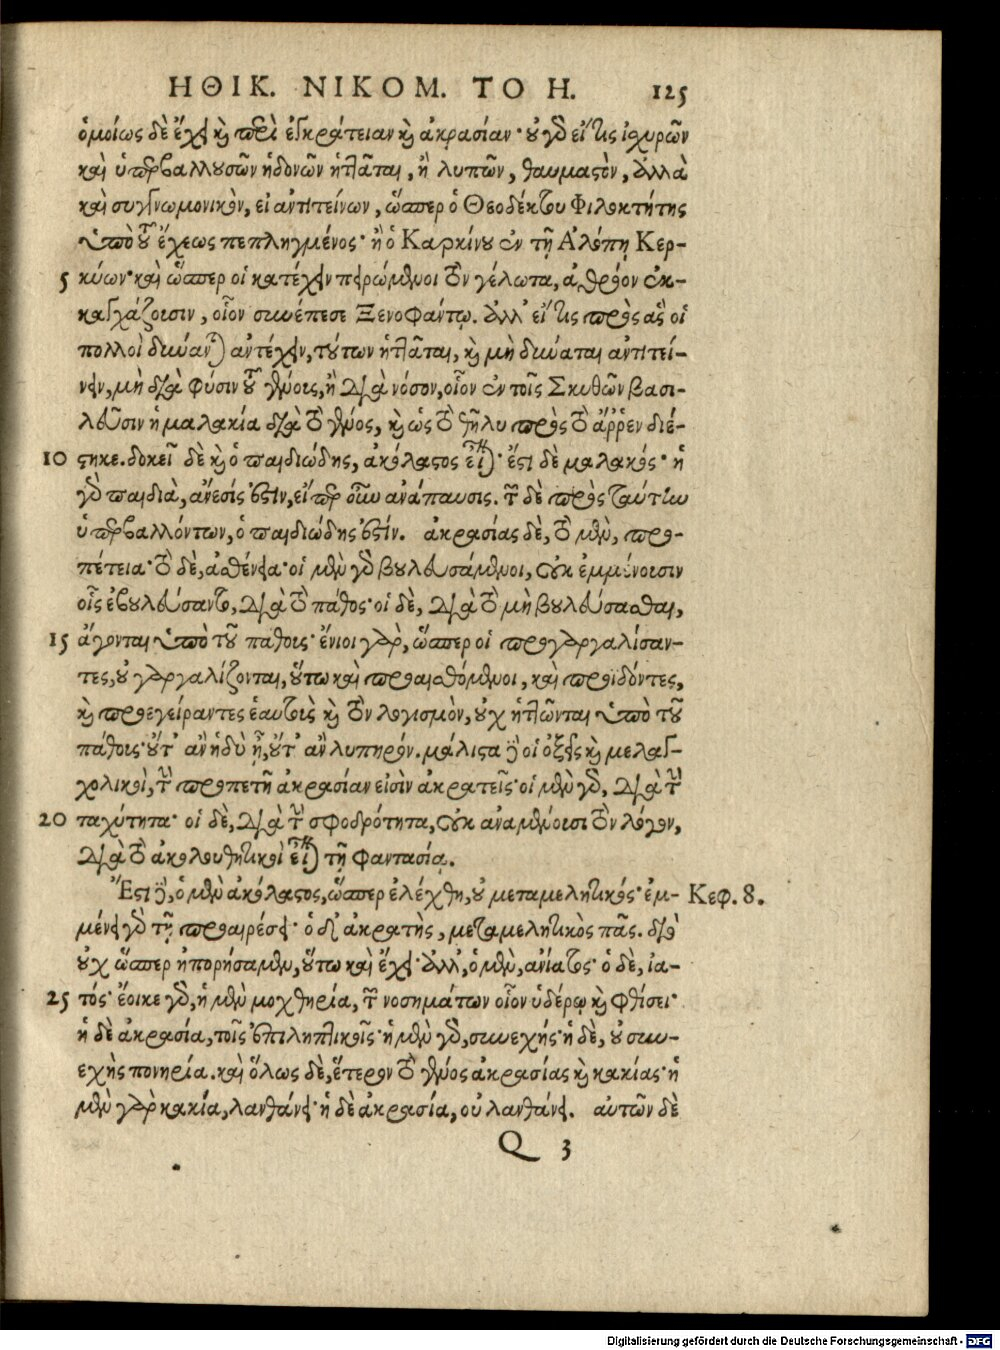 ΗΘΙΚ. ΝΙΚΟΜ. ΤΟ Η. 125
ὁμοίως δὲ ἔχει καὶ περὶ ἐγκράτειαν καὶ ἀκρασίαν· οὐ γὰρ εἴ τις ἰσχυρῶν
καὶ ὑπερβαλλουσῶν ἡδονῶν ἡττᾶται, ἢ λυπῶν, θαυμαστὸν, ἀλλὰ
καὶ συγγνωμονικὸν, εἰ ἀντιτείνων, ὥσπερ ὁ Θεοδέκτου Φιλοκτήτης
ὑπὸ τοῦ ἔχεως πεπληγμένος· ἢ ὁ Καρκίνου ἐν τῇ Ἀλόπῃ Κερ-
5 κύων· καὶ ὥσπερ οἱ κατέχειν πειρώμενοι τὸν γέλωτα, ἀθρόον ἐκ-
καγχάζουσιν, οἷον συνέπεσε Ξενοφάντῳ. ἀλλ' εἴ τις πρὸς ἃς οἱ
πολλοὶ δύνανται ἀντέχειν, τούτων ἡττᾶται, καὶ μὴ δύναται ἀντιτεί-
νειν, μὴ διὰ φύσιν τοῦ γένους, ἢ διὰ νόσον, οἷον ἐν τοῖς Σκυθῶν βασι-
λεῦσιν ἡ μαλακία διὰ τὸ γένος, καὶ ὡς τὸ θῆλυ πρὸς τὸ ἄῤῥεν διέ-
10 στηκε. δοκεῖ δὲ καὶ ὁ παιδιώδης, ἀκόλαστος εἶναι· ἔστι δὲ μαλακός· ἡ
γὰρ παιδιὰ, ἄνεσίς ἐστιν, εἴπερ οὖν ἀνάπαυσις. τῶν δὲ πρὸς ταύτην
ὑπερβαλλόντων, ὁ παιδιώδης ἐστίν. ἀκρασίας δὲ, τὸ μὲν, προ-
πέτεια· τὸ δὲ, ἀσθένεια· οἱ μὲν γὰρ βουλευσάμενοι, οὐκ ἐμμένουσιν
οἷς ἐβουλεύσαντο, διὰ τὸ πάθος· οἱ δὲ, διὰ τὸ μὴ βουλεύσασθαι,
15 ἄγονται ὑπὸ τοῦ πάθους· ἔνιοι γὰρ, ὥσπερ οἱ προγαργαλίσαν-
τες, οὐ γαργαλίζονται, οὕτω καὶ προαισθόμενοι, καὶ προϊδόντες,
καὶ προεγείραντες ἑαυτοὺς καὶ τὸν λογισμὸν, οὐχ ἡττῶνται ὑπὸ τοῦ
πάθους· οὔτ' ἂν ἡδὺ ᾖ, οὔτ' ἂν λυπηρόν. μάλιστα δὲ οἱ ὀξεῖς καὶ μελαγ-
χολικοὶ, τὴν προπετῆ ἀκρασίαν εἰσὶν ἀκρατεῖς· οἱ μὲν γὰρ, διὰ τὴν
20 παχύτητα· οἱ δὲ, διὰ τὴν σφοδρότητα, οὐκ ἀναμένουσι τὸν λόγον,
διὰ τὸ ἀκολουθητικοὶ εἶναι τῇ φαντασίᾳ.
Ἔστι δὲ, ὁ μὲν ἀκόλαστος, ὥσπερ ἐλέχθη, οὐ μεταμελητικός· ἐμ- Κεφ. 8.
μένει γὰρ τῇ προαιρέσει· ὁ δ' ἀκρατὴς, μεταμελητικὸς πᾶς. διὸ
οὐχ ὥσπερ ἠπορήσαμεν, οὕτω καὶ ἔχει· ἀλλ', ὁ μὲν, ἀνίατος· ὁ δὲ, ἰα-
25 τός· ἔοικε γὰρ, ἡ μὲν μοχθηρία, τῶν νοσημάτων οἷον ὑδέρῳ καὶ φθίσει·
ἡ δὲ ἀκρασία, τοῖς ἐπιληπτικοῖς· ἡ μὲν γὰρ, συνεχής· ἡ δὲ, οὐ συν-
εχὴς πονηρία. καὶ ὅλως δὲ, ἕτερον τὸ γένος ἀκρασίας καὶ κακίας· ἡ
μὲν γὰρ κακία, λανθάνει· ἡ δὲ ἀκρασία, οὐ λανθάνει. αὐτῶν δὲ
Q 3
Digitalisierung gefördert durch die Deutsche Forschungsgemeinschaft - DFG